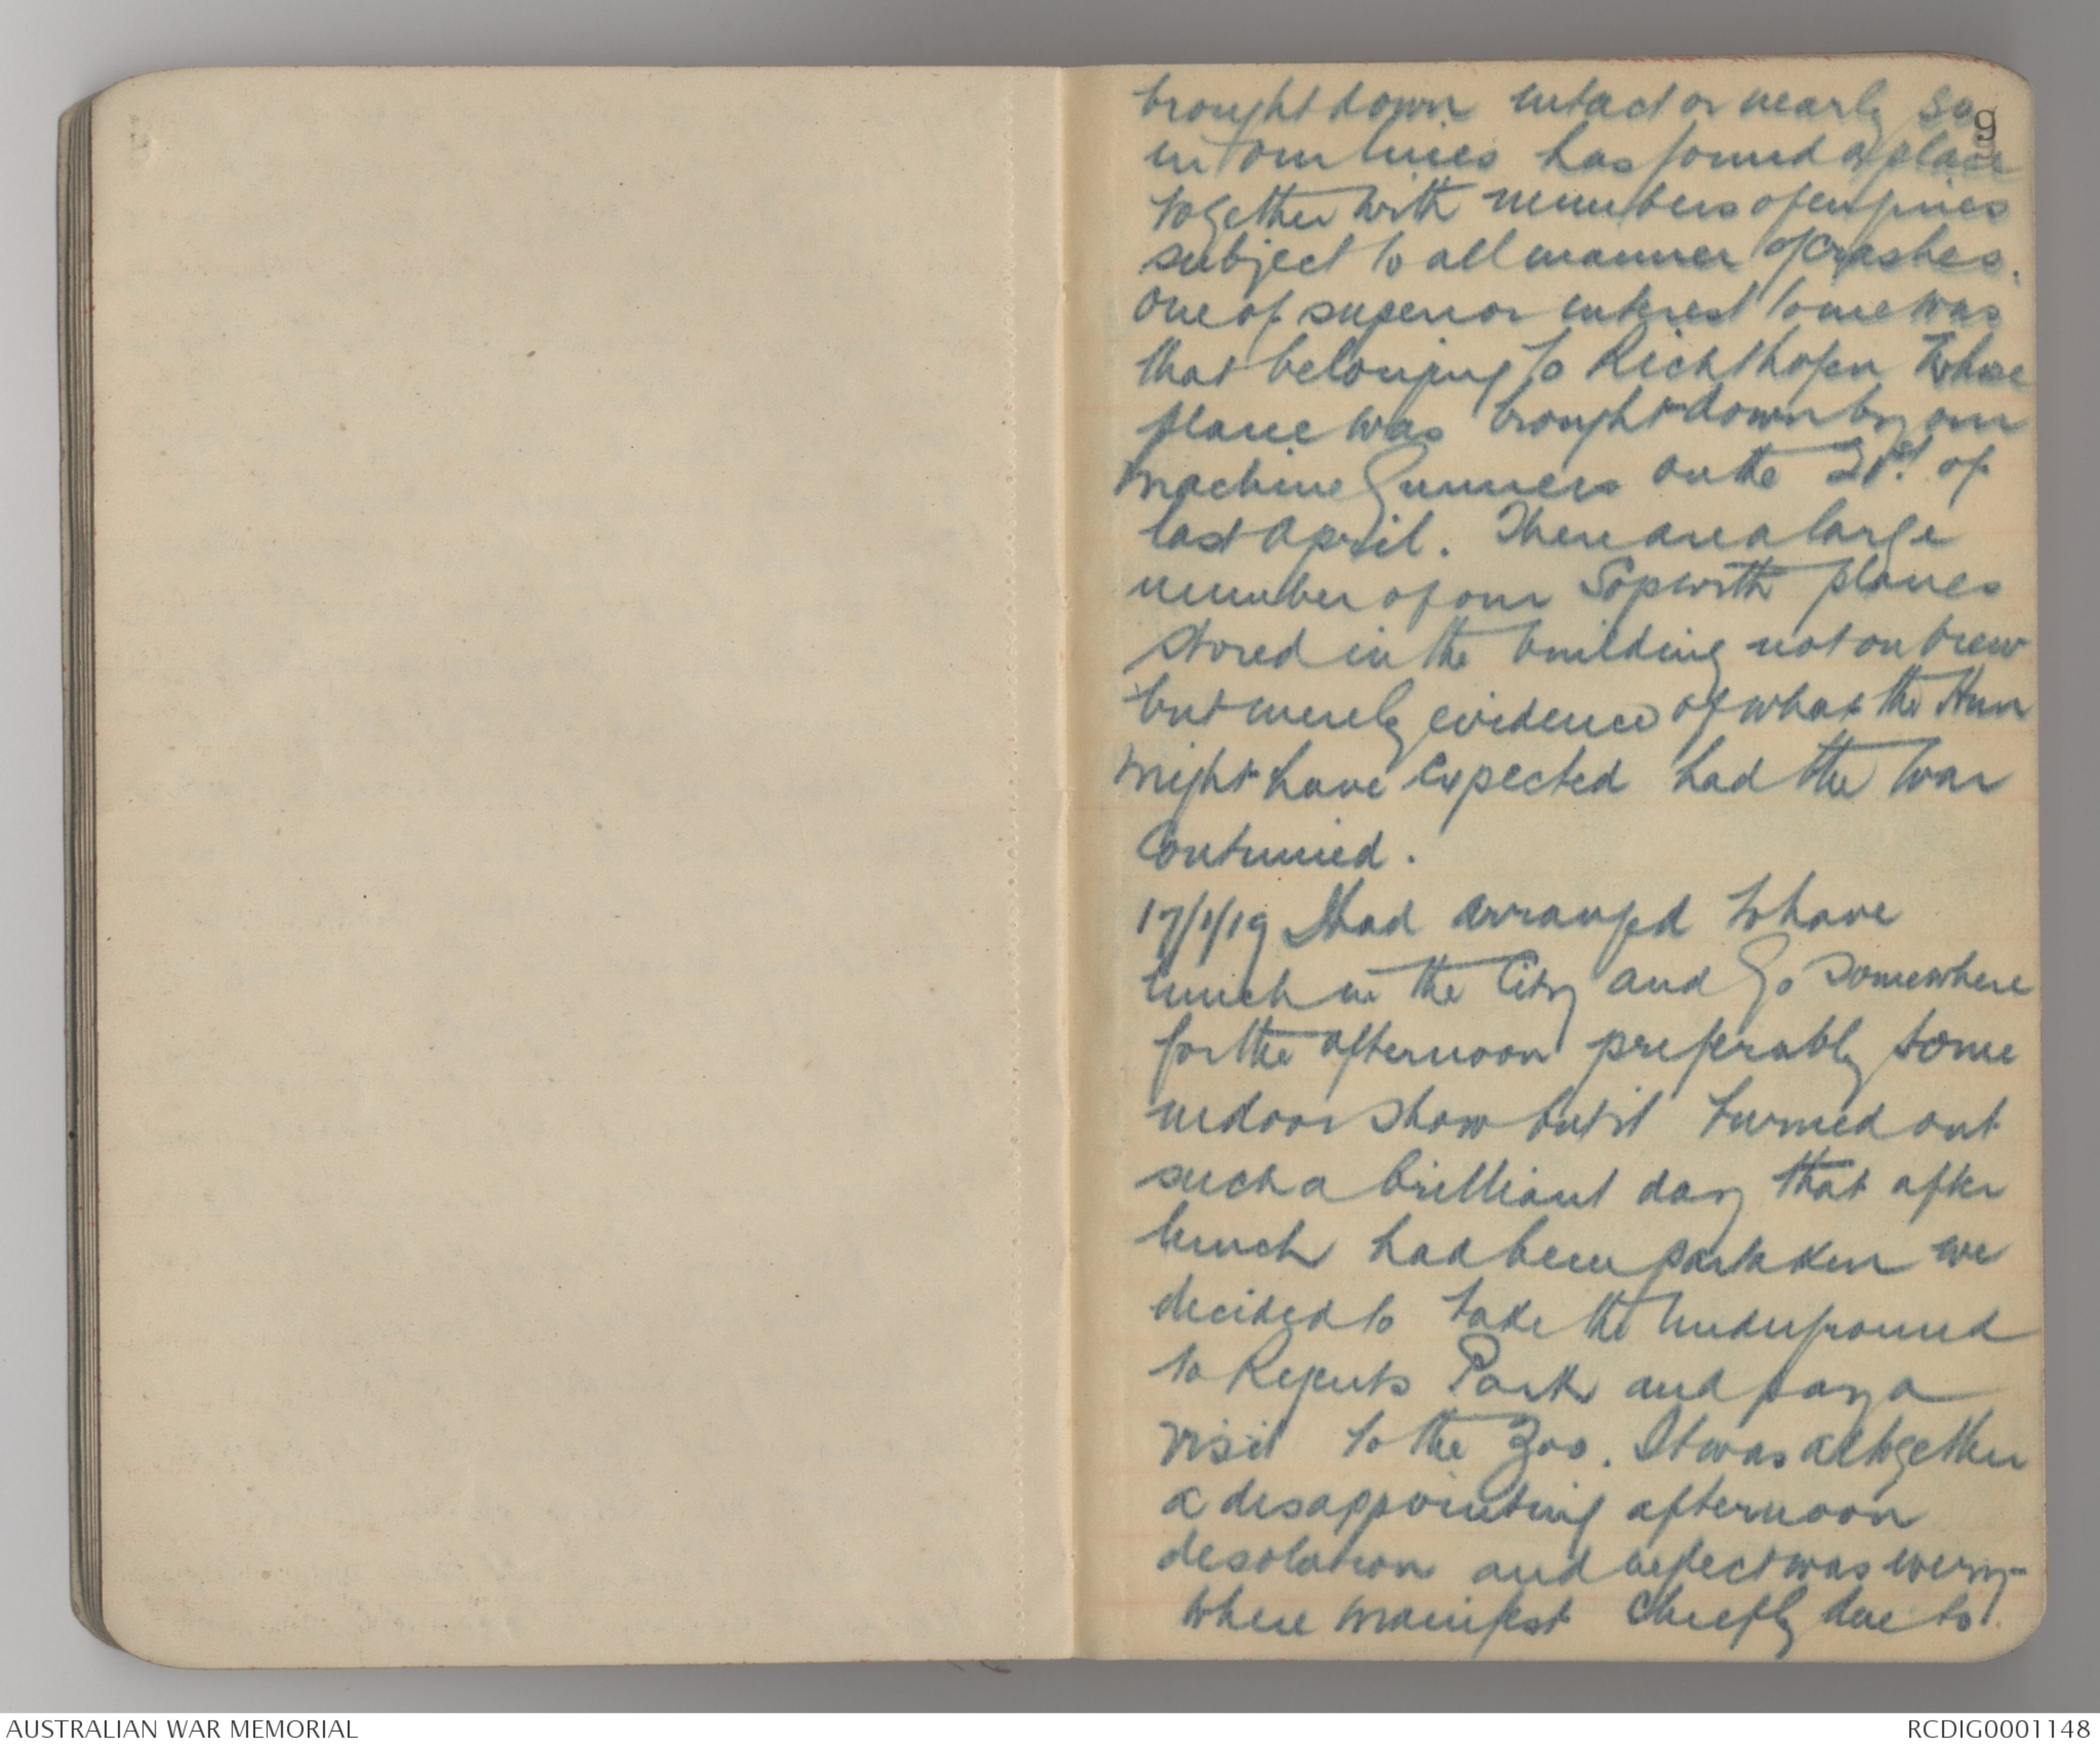 9
brought down intact or nearly so
in our lines has found a place
together with numbers of engines
subject to all manner of crashes.
One of superior interest to me was
that belonging to Richthofen whose
plane was brought down by our
machine Gunners on the 21st of
last April. There are a large
number of our Sopwith planes
stored in the building not on view
but merely evidence of what the Hun
might have expected had the War
Continued.
17/1/19 I had arranged to have
lunch in the City and Go somewhere
for the afternoon preferably some
indoor show but it turned out
such a brilliant day that after
lunch had been partaken we
decided to take the Underground
to Regents Park and pay a
visit to the Zoo. It was altogether
a disappointing afternoon
desolation and neglect was every-
where manifest Chiefly due to
AUSTRALIAN WAR MEMORIAL
RCDIG0001148